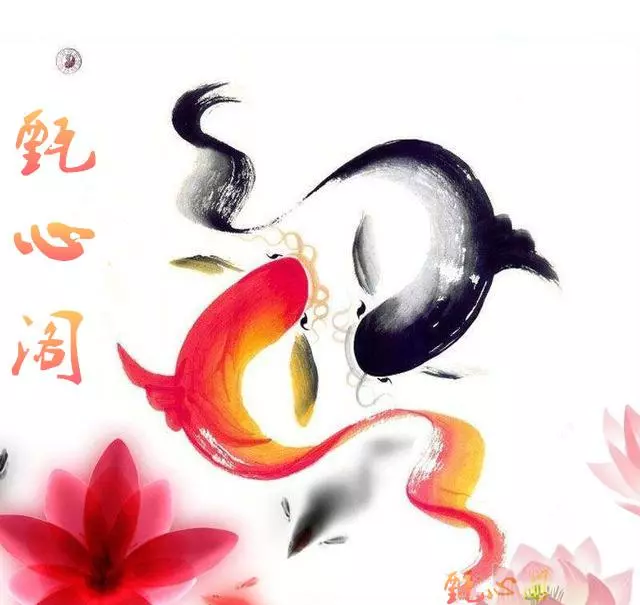 甄
心
阁
甄心